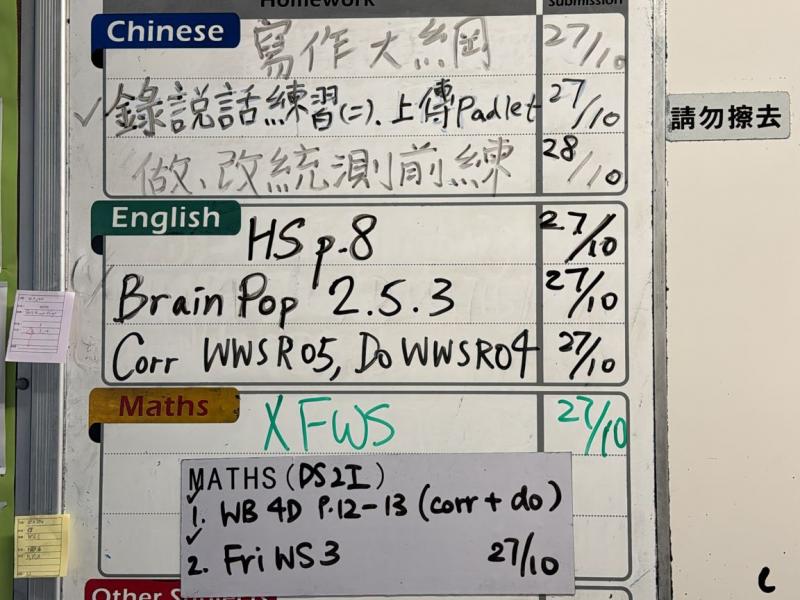 Homework
Submission
Chinese
寫作大綱 27/10
錄說話練習(二)、上傳Padlet 27/10
做、改統測前練 28/10
請勿擦去
English
HS p.8 27/10
BrainPop 2.5.3 27/10
Corr WWSR05, Do WWSR04 27/10
Maths
XFWS 27/10
MATHS (DS2I)
1. WB 4D P.12-13 (corr + do)
2. Fri WS3 27/10
Other Subjects